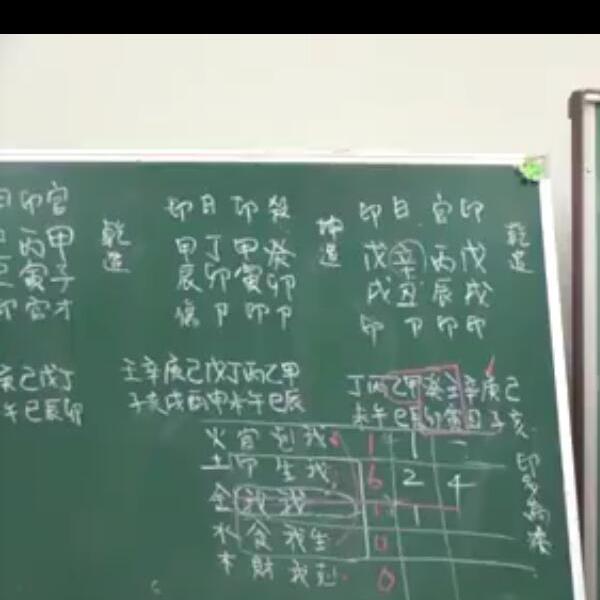 乾造
印日官印
戊辛丙戊
戌丑辰戌
印卩印印
丁丙乙甲癸壬辛庚己
未午巳辰卯寅丑子亥
坤造
印日印殺
甲丁甲癸
辰卯寅卯
傷卩印卩
壬辛庚己戊丁丙乙甲
子亥戌酉申未午巳辰
乾造
日印官
丙甲
寅子
印官才
己戊丁
午巳辰卯
火官剋我 1 1
土印生我 6 2 4
金我我 1 1
水食我生 0
木財我剋 0
印多為